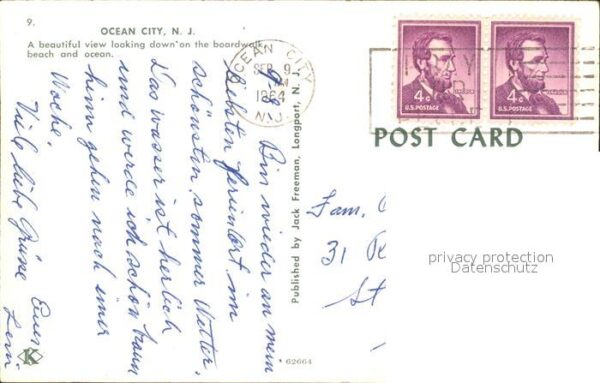 9.
OCEAN CITY, N. J.
A beautiful view looking down on the boardwalk,
beach and ocean.
OCEAN CITY
SEP 9
PM
1964
N.J.
4¢
U.S. POSTAGE
4¢
U.S. POSTAGE
POST CARD
Bin wieder an mein
liebsten Ferienort im
schönstin sommer Wetter.
Das wasser ist herlich
und werde ich schön braun
heim gehen nach einer
Woche.
Viele liebe Grüsse Eure
Published by Jack Freeman, Longport, N. J.
62664
K
Fam.
31
St
privacy protection
Datenschutz